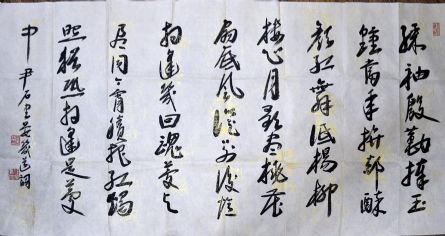 綵袖殷勤捧玉
鍾當年拚却醉
顏紅舞低楊柳
樓心月歌盡桃花
扇底風從別後憶
相逢幾回魂夢與
君同今宵賸把
照猶恐相逢是夢
中 尹石書晏幾道詞